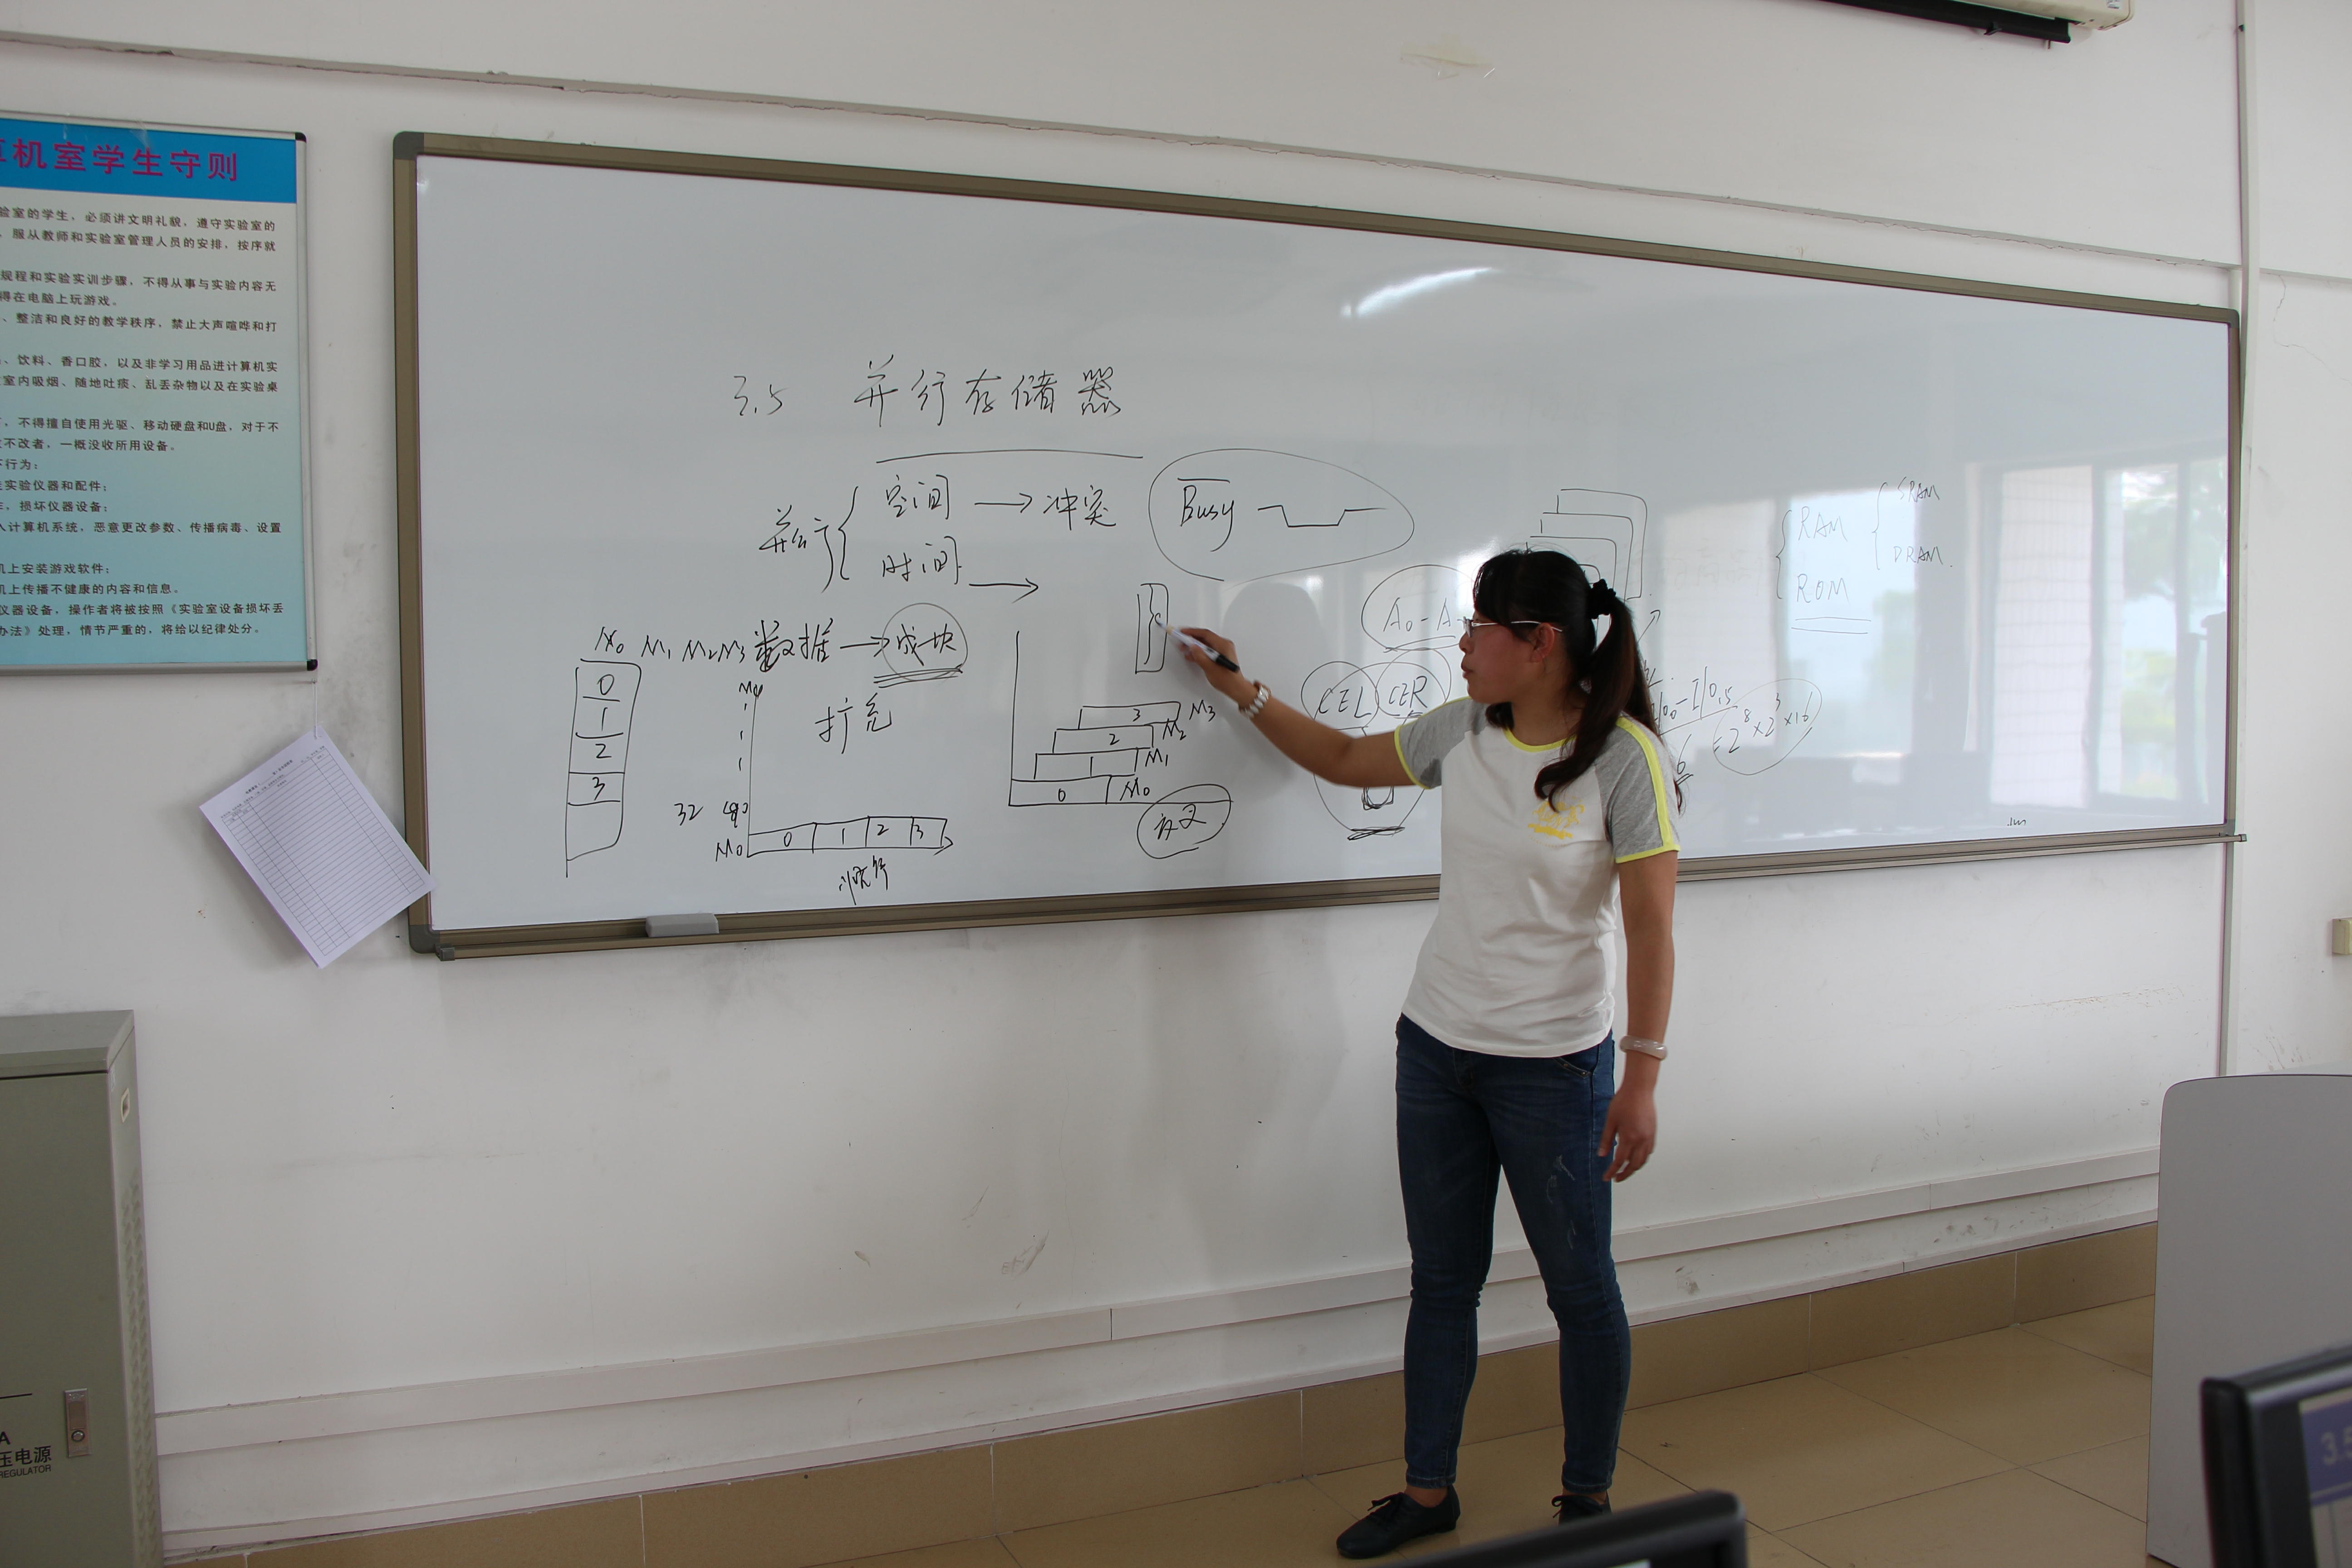 机室学生守则
验室的学生，必须讲文明礼貌，遵守实验室的
，服从教师和实验室管理人员的安排，按序就
规程和实验实训步骤，不得从事与实验内容无
得在电脑上玩游戏。
、整洁和良好的教学秩序，禁止大声喧哗和打
、饮料、香口胶，以及非学习用品进计算机实
室内吸烟、随地吐痰、乱丢杂物以及在实验桌
，不得擅自使用光驱、移动硬盘和U盘，对于不
不改者，一概没收所用设备。
行为：
实验仪器和配件；
，损坏仪器设备；
入计算机系统，恶意更改参数、传播病毒、设置
机上安装游戏软件；
机上传播不健康的内容和信息。
仪器设备，操作者将被按照《实验室设备损坏丢
办法》处理，情节严重的，将给以纪律处分。
3.5 并行存储器
并行 空间 → 冲突 Busy
时间 →
M0 M1 M2 M3 数据 → 成块
扩充
0
1
2
3
32
M0 0 1 2 3
顺序
3 M3
2 M2
1 M1
0 M0
交叉
A0-A
CEL CER
RAM SRAM
DRAM
ROM
=2⁸×2³×16
A
压电源
REGULATOR
3.5